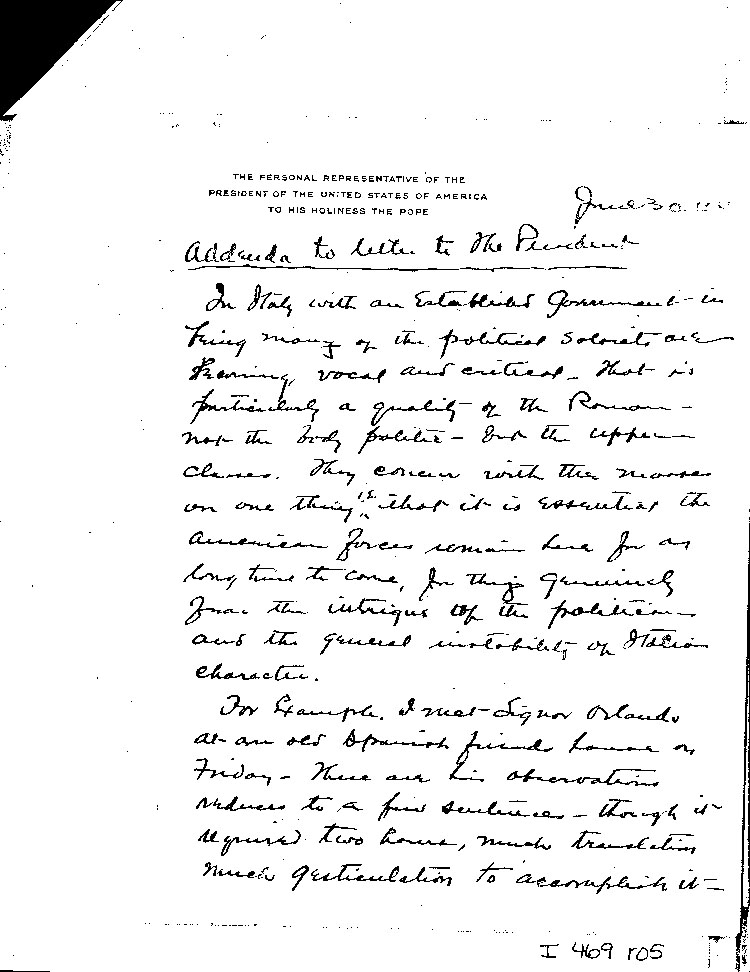 THE PERSONAL REPRESENTATIVE OF THE
PRESIDENT OF THE UNITED STATES OF AMERICA
TO HIS HOLINESS THE POPE
June 30
Addenda to letter to the President
In Italy with an Established Government in
being many of the political are
vocal and critical – that is
particularly a quality of the Roman –
not the body politic – but the upper
classes. They concur with the masses
on one thing is that it is essential the
American forces remain here for a
long time to come, for they genuinely
fear the intrigue of the politician
and the general instability of Italian
character.
For Example, I met Signor Orlando
at an old Spanish friends house on
Friday – These are his observations
reduced to a few sentences – though it
required two hours, much translation
much gesticulation to accomplish it –
I 469 r05